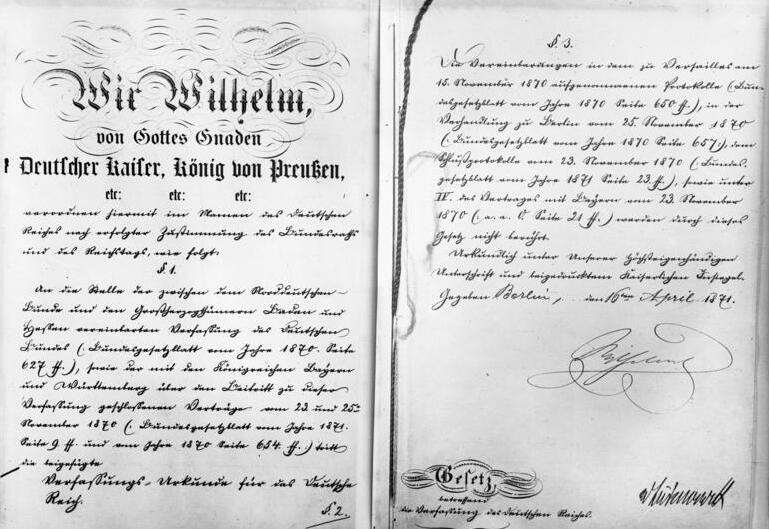 Wir Wilhelm,
von Gottes Gnaden
Deutscher Kaiser, König von Preußen,
etc: etc: etc:
verordnen hiermit im Namen des Deutschen
Reichs nach erfolgter Zustimmung des Bundesraths
und des Reichstags, wie folgt:
§ 1.
An die Stelle der zwischen dem Norddeutschen
Bunde und den Großherzogthümern Baden und
Hessen vereinbarten Verfassung des Deutschen
Bundes (Bundesgesetzblatt vom Jahre 1870. Seite
627 ff.), sowie der mit den Königreichen Bayern
und Württemberg über den Beitritt zu dieser
Verfassung geschlossenen Verträge vom 23. und 25ten
November 1870 (: Bundesgesetzblatt vom Jahre 1871.
Seite 9. ff. und vom Jahre 1870 Seite 654 ff.:) tritt
die beigefügte
Verfassungs-Urkunde für das Deutsche
Reich.
§. 2.
§. 3.
Die Vereinbarungen in dem zu Versailles am
15. November 1870 aufgenommenen Protokolle (: Bun-
desgesetzblatt vom Jahre 1870 Seite 650 ff.), in der
Verhandlung zu Berlin vom 25. November 1870
(: Bundesgesetzblatt vom Jahre 1870 Seite 657:), dem
Schlußprotokolle vom 23. November 1870 (: Bundes-
gesetzblatt vom Jahre 1871 Seite 23 ff.), sowie unter
IV. des Vertrages mit Bayern vom 23. November
1870 (: a. a. O. Seite 21 ff.) werden durch dieses
Gesetz nicht berührt.
Urkundlich unter Unserer Höchsteigenhändigen
Unterschrift und beigedrucktem Kaiserlichen Insiegel.
Gegeben Berlin, den 16ten April 1871.
Wilhelm
Gesetz,
betreffend
die Verfassung des Deutschen Reiches.